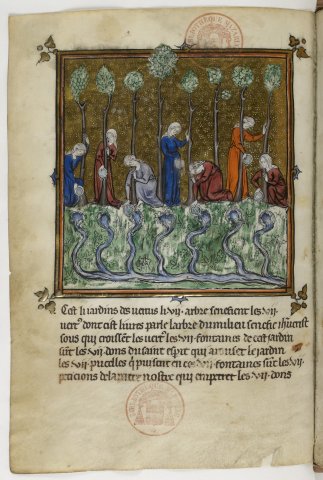 BIBLIOTHEQUE
Cest li iardins des vertus li vii · arbre senefient les · vii ·
uertˢ dont cist liures parle larbre du milieu senefie ihucrist
sous qui croissēt les uertˢ les · vii · fontaines de cest iardin
sūt les · vii · dons du saint esprit qui arousēt le iardin
les · vii · pucelles q̄ puisent en ces · vii · fontaines sūt les · vii ·
peticions de la patre nostre qui empetrēt les · vii · dons